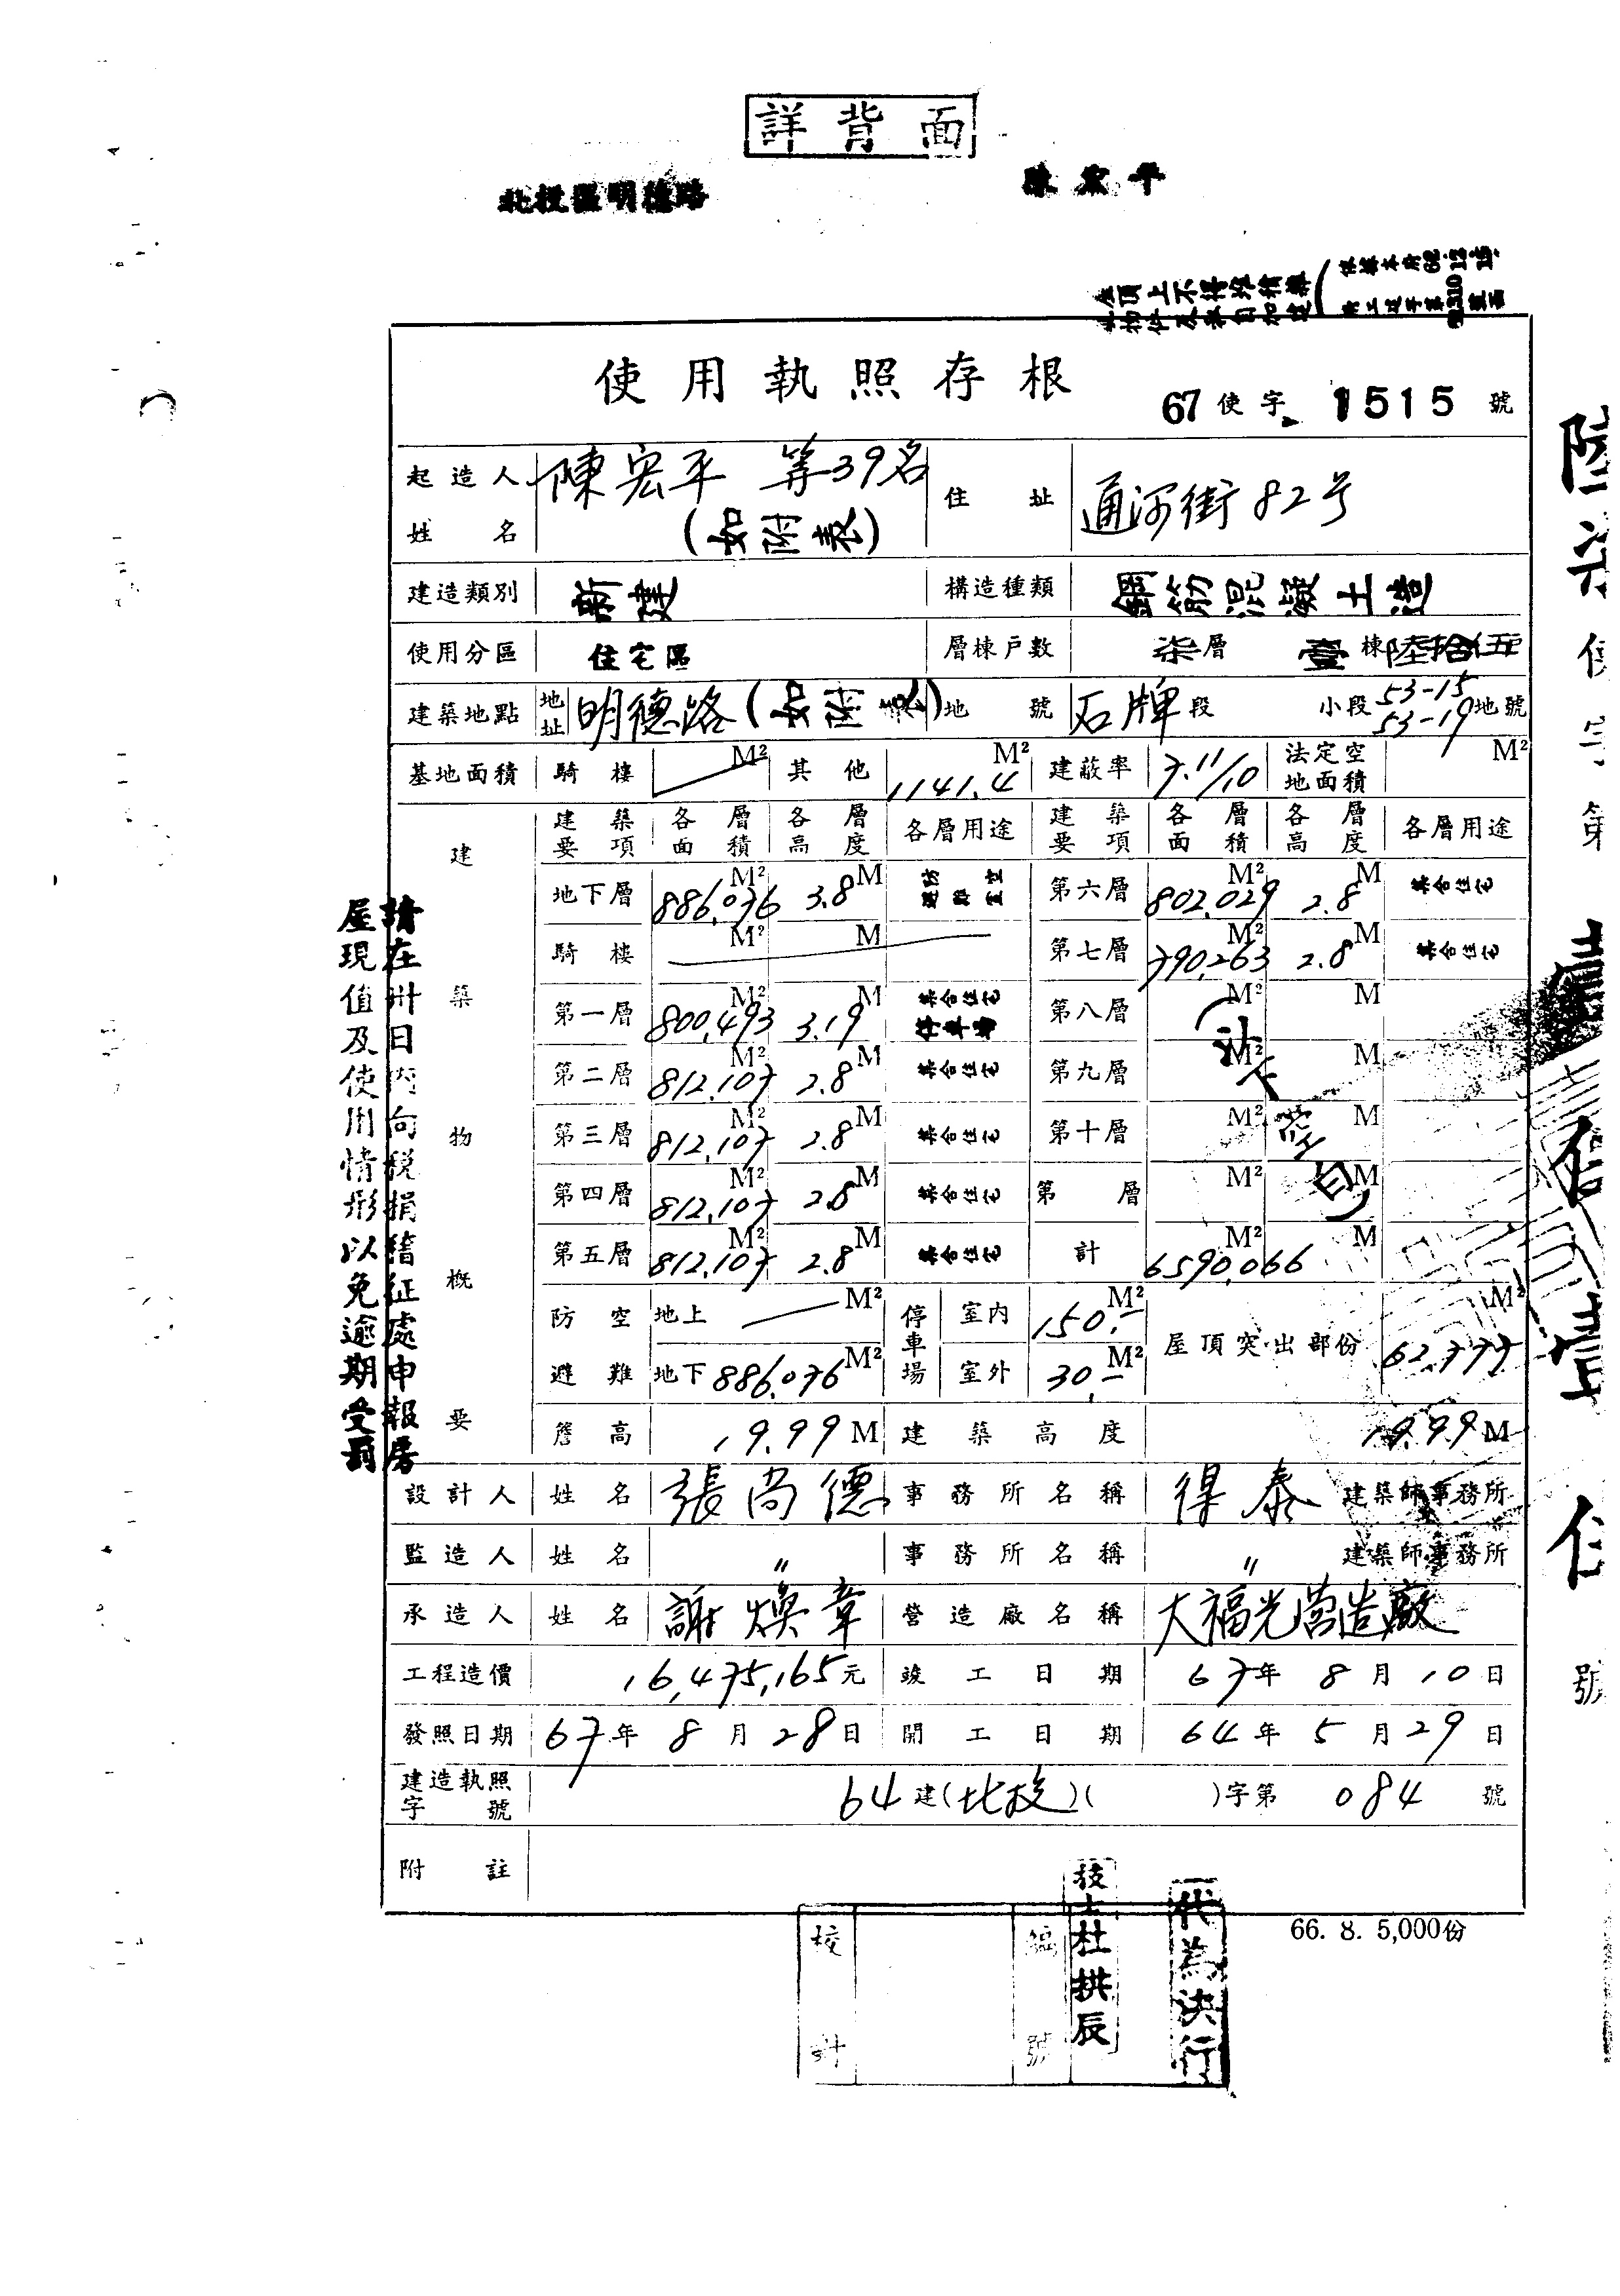 詳背面
北投區明德路
陳宏平
屋頂上不得堆積雜
使用執照存根
67使字 1515 號
起造人姓名 陳宏平 等39名 (如附表) 住址 通河街82号
建造類別 新建 構造種類 鋼筋混凝土造
使用分區 住宅區 層棟戶數 柒層 壹棟 陸拾伍戶
建築地點 地址 明德路(如附表) 地號 石牌段 小段 53-15 53-19 地號
基地面積 騎樓 M² 其他 1141.4 M² 建蔽率 7.11/10 法定空地面積 M²
建築物概要
建築要項 各層面積 各層高度 各層用途 建築要項 各層面積 各層高度 各層用途
地下層 886.076 M² 3.8 M 防空避難室 第六層 802.029 M² 2.8 M 集合住宅
騎樓 M² M 第七層 790.263 M² 2.8 M 集合住宅
第一層 800.493 M² 3.19 M 集合住宅 停車場 第八層 M² M
第二層 812.107 M² 2.8 M 集合住宅 第九層 M² M
第三層 812.107 M² 2.8 M 集合住宅 第十層 M² M
第四層 812.107 M² 2.8 M 集合住宅 第 層 M² M
第五層 812.107 M² 2.8 M 集合住宅 計 6590.066 M² M
(以下空白)
防空避難 地上 M² 停車場 室內 150.- M² 屋頂突出部份 62.777 M²
地下 886.076 M² 室外 30.- M²
簷高 19.99 M 建築高度 19.99 M
設計人 姓名 張尚德 事務所名稱 得泰 建築師事務所
監造人 姓名 〃 事務所名稱 〃 建築師事務所
承造人 姓名 謝煥章 營造廠名稱 大福光营造廠
工程造價 16,475,165元 竣工日期 67年8月10日
發照日期 67年8月28日 開工日期 64年5月29日
建造執照字號 64建(北投)( )字第 084 號
附註
66. 8. 5,000份
校計
編號
技士杜拱辰
代為決行
請在卅日內向稅捐稽征處申報房
屋現值及使用情形以免逾期受罰
陸柒使字第壹伍壹伍號